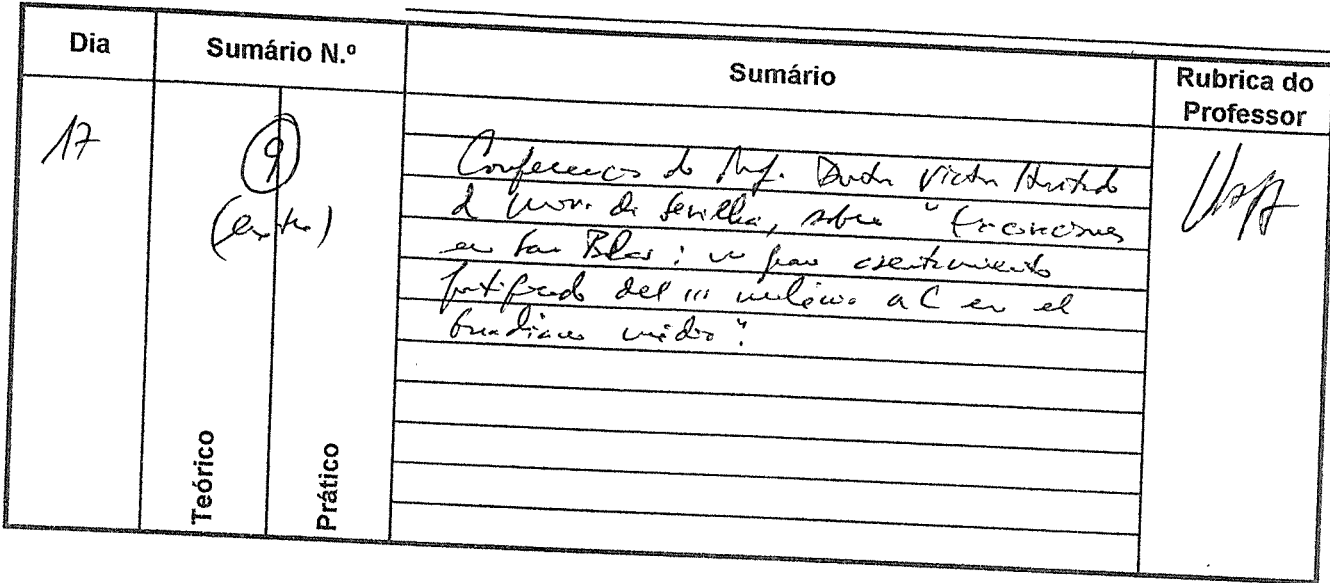 Dia
Sumário N.º
Sumário
Rubrica do
Professor
17
9
(extra)
Conferência do Prof. Doutor Victor Hurtado
da Univ. de Sevilha, sobre "Excavaciones
en San Blas: un gran asentamiento
fortificado del III milenio a C en el
Guadiana médio".
Teórico
Prático